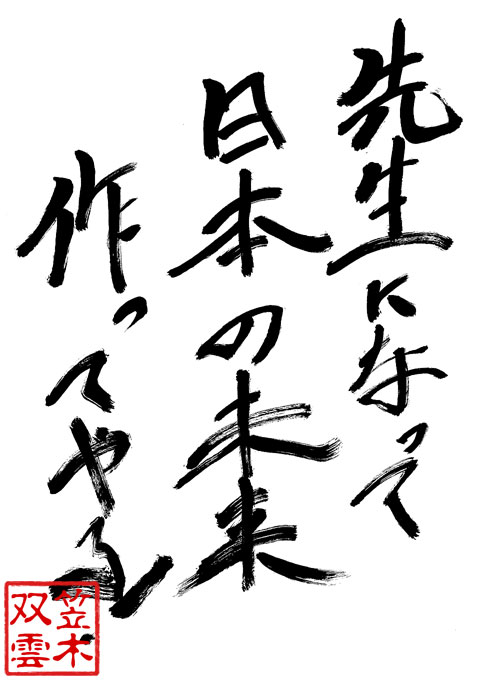 先生になって
日本の未来
作ってやる
笠木
双雲